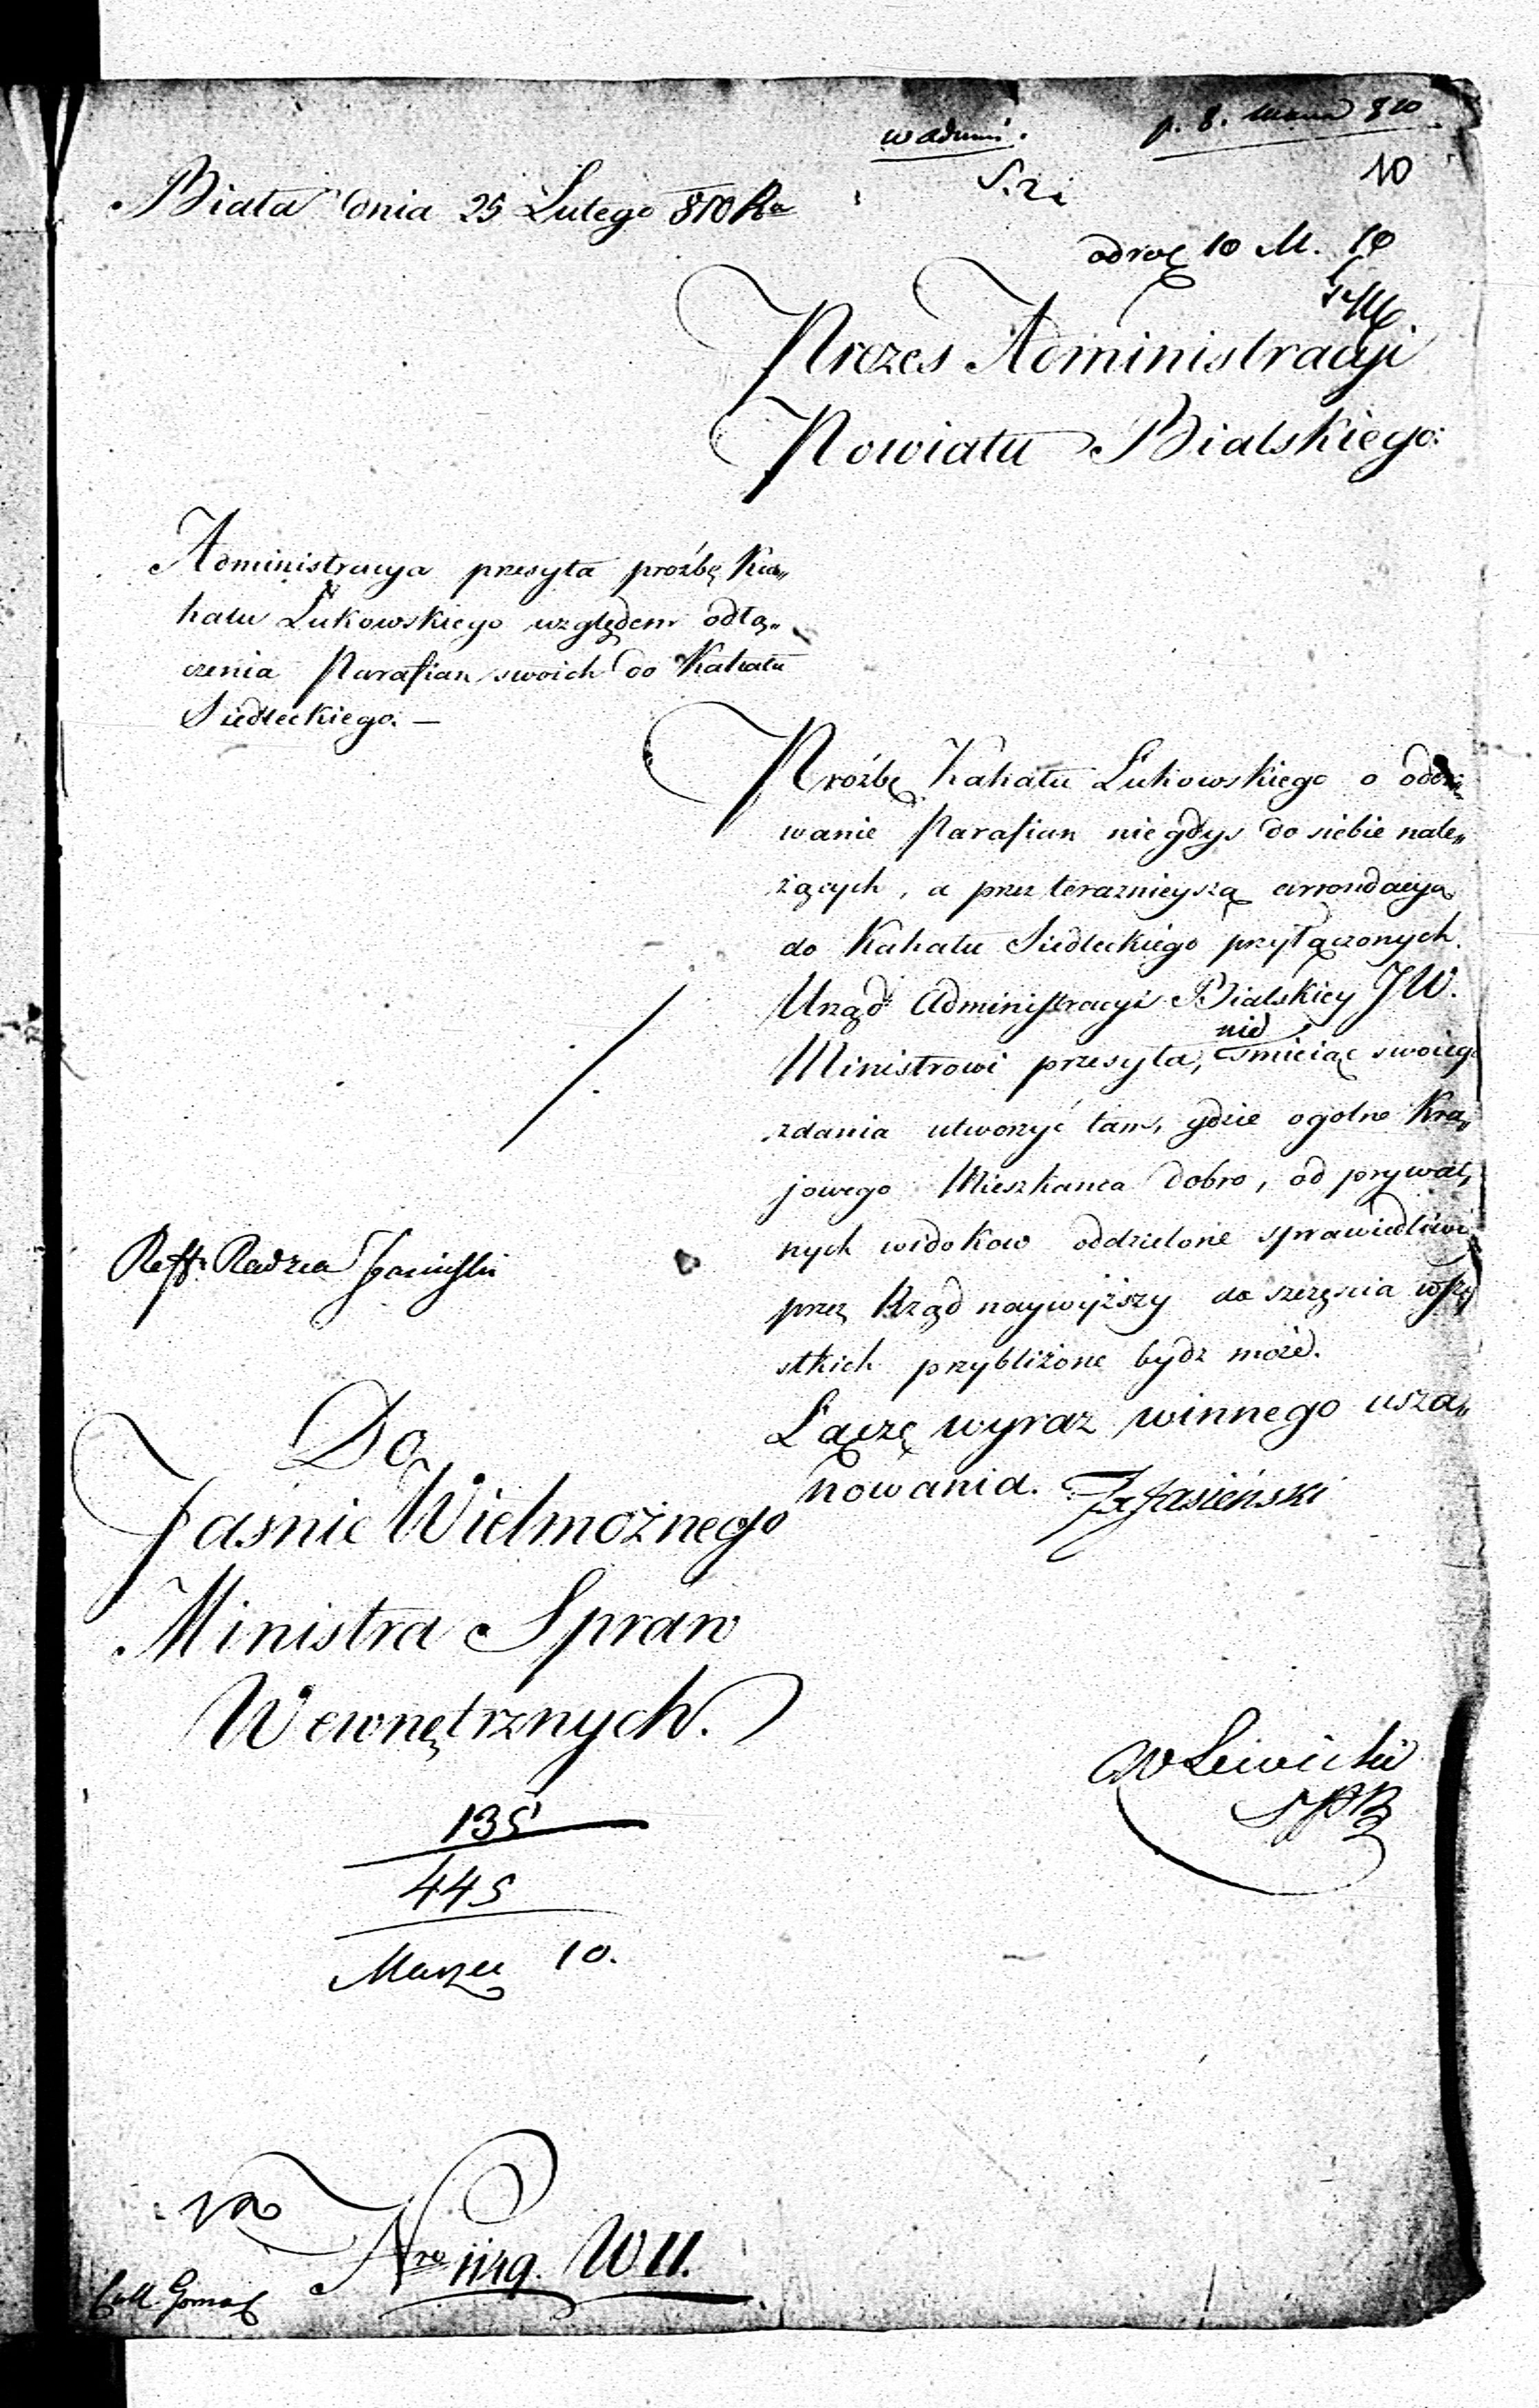 p. 8. Marca 810
10
Biała dnia 25 Lutego 810 Ra
odroc 10 M. 10
Prezes Administracyi
Powiatu Bialskiego:
Administracya przesyła proźbę Ka„
hału Łukowskiego względem odłą„
czenia Parafian swoich do Kahału
Siedleckiego. —
Proźbę Kahału Łukowskiego o
wanie Parafian niegdys do siebie nale„
żących, a przez teraznieyszą arrondacyą
do Kahału Siedleckiego przyłączonych.
Urząd Administracyi Bialskiey JW.
Ministrowi przesyła, nie smieiąc swoieg
zdania utworzyć tam, gdzie ogolne Kra„
jowego Mieszkanca dobro, od prywat„
nych widokow oddzielone sprawiedliwi
przez Rząd naywyższy do szczęscia wszy
stkich przybliżone bydz może.
Łączę wyraz winnego usza„
nowania. Jasieński
Reff. Radzca
Do
Jaśnie Wielmożnego
Ministra Spraw
Wewnętrznych.
Lewicki
SPB
135
445
Marzec 10.
Nro 1149. WU.